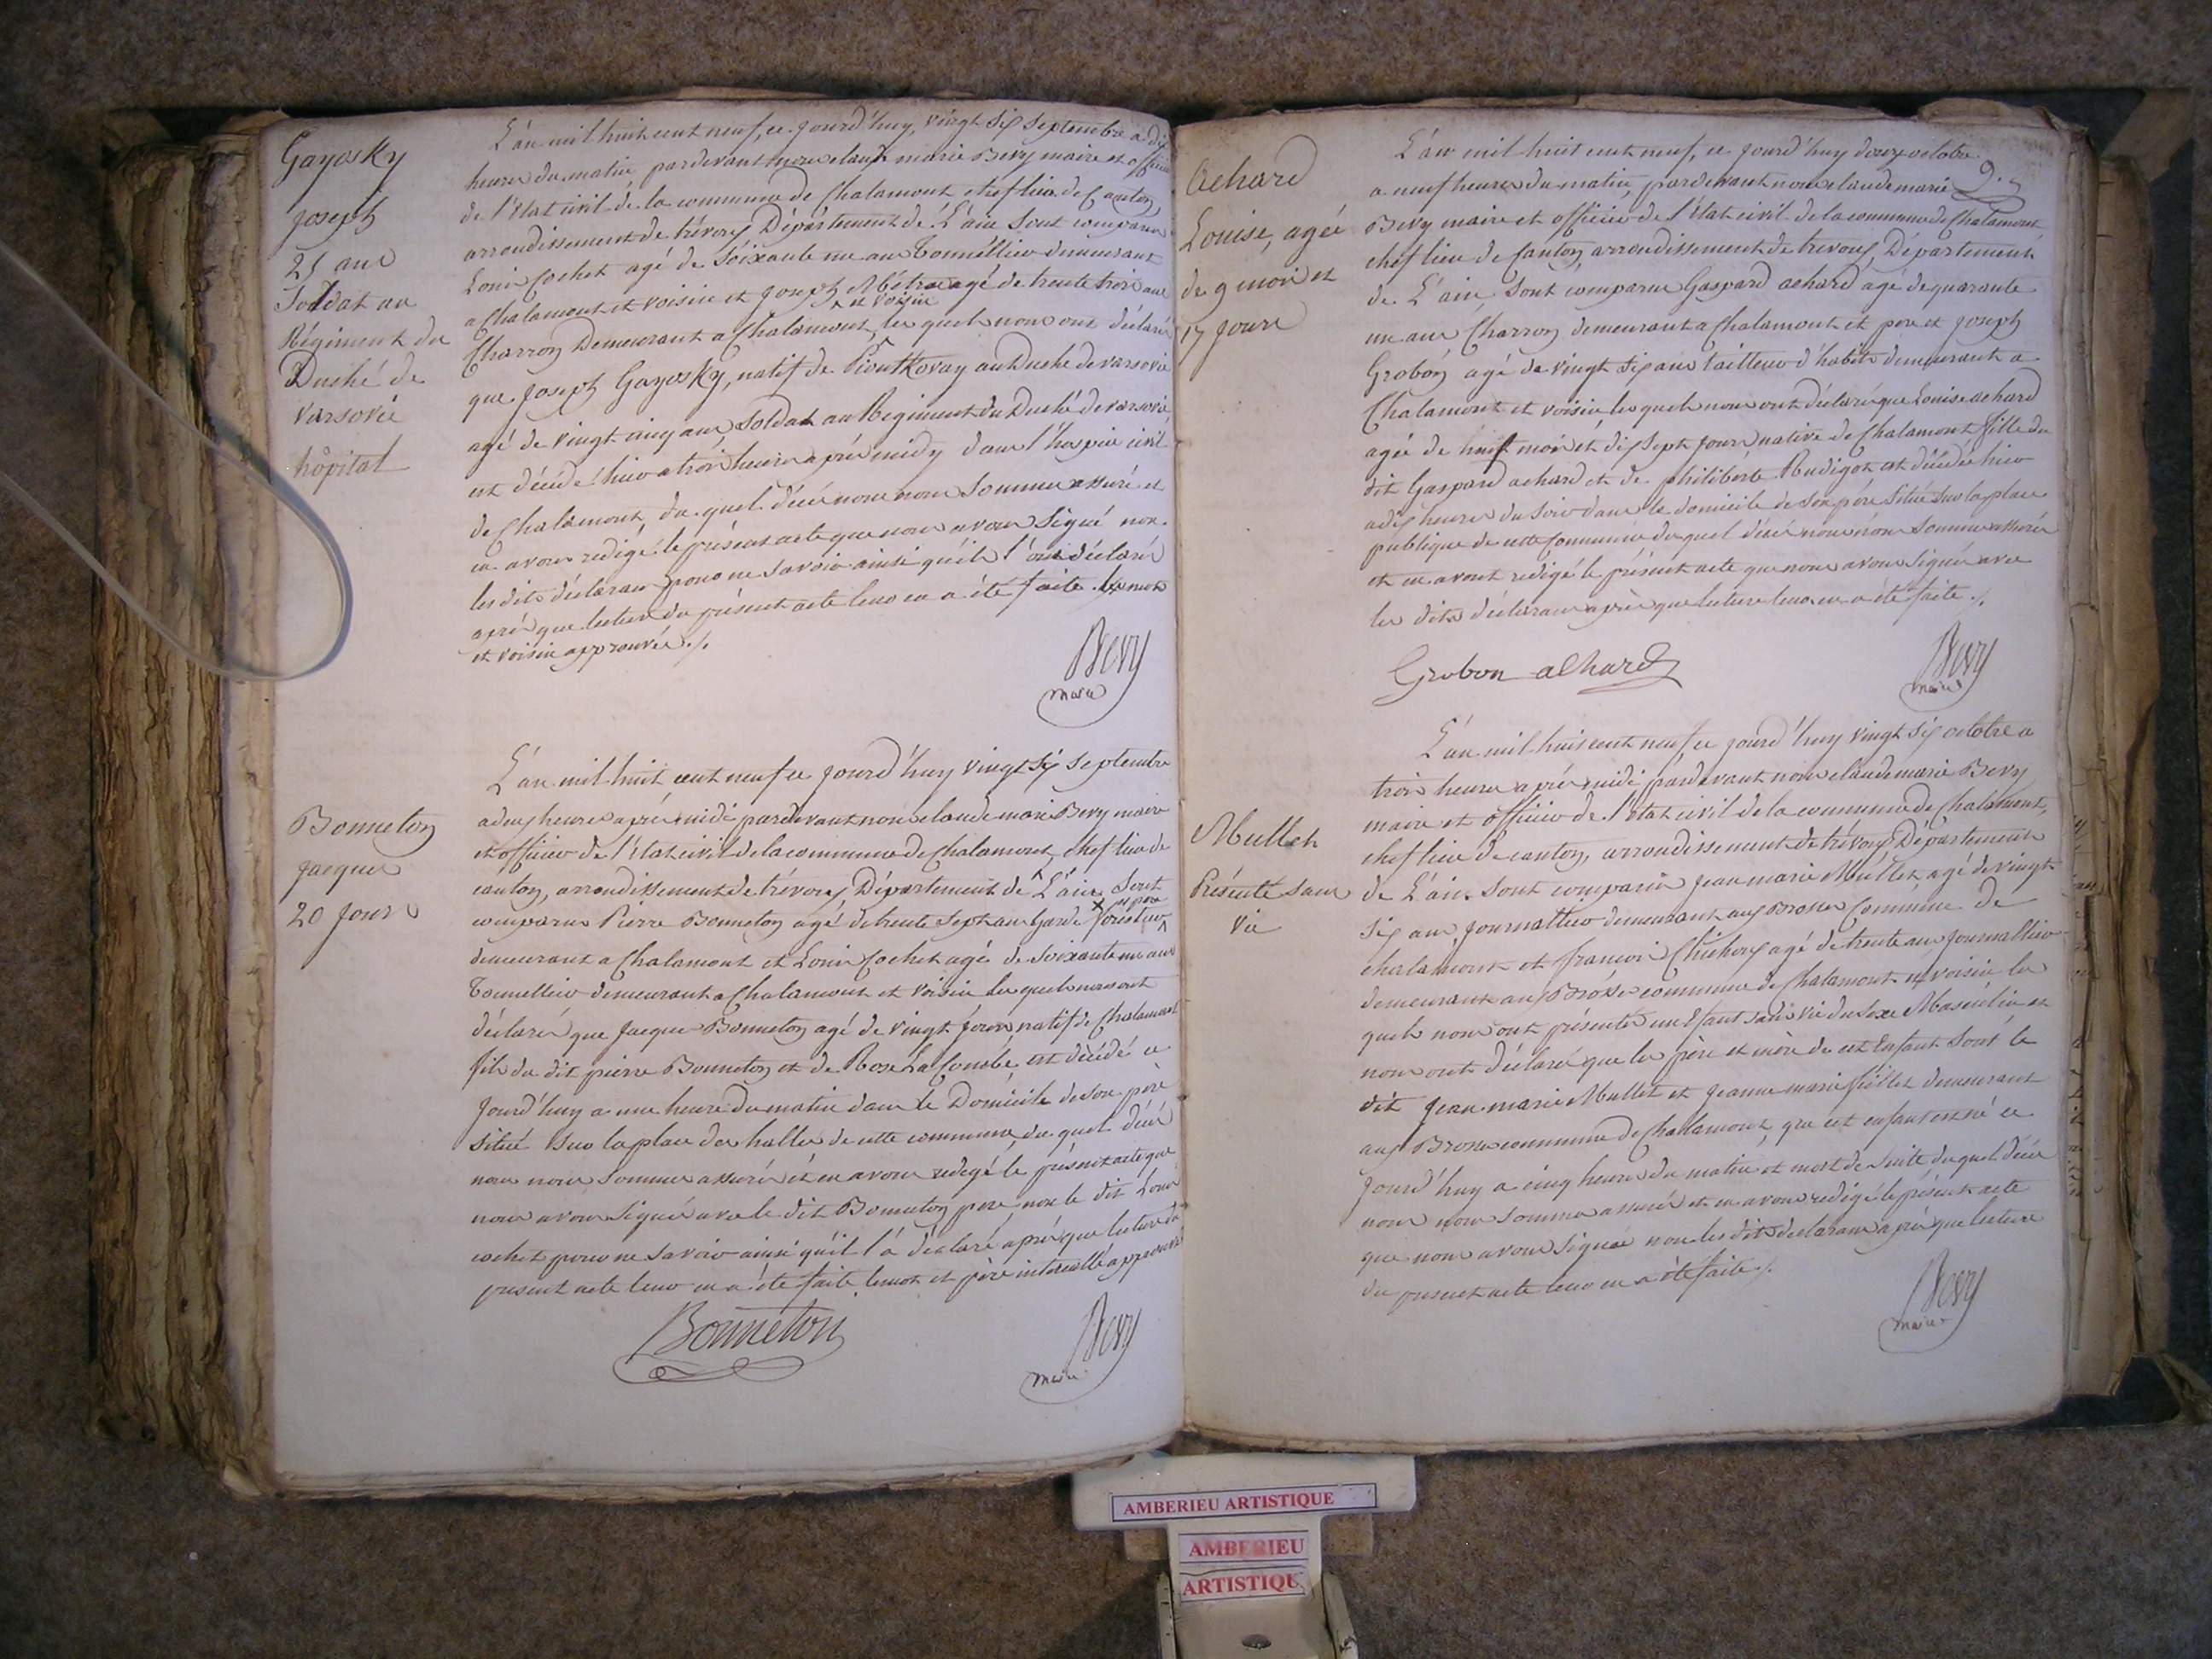 Gayosky
Joseph
25 ans
Soldat au
Régiment du
Duché de
varsovie
hôpital
L'an mil huit cent neuf, ce jourd'huy, vingt six septembre a dix
heures du matin, pardevant nous claude marie Bevy maire et officier
de l'état civil de la commune de Chalamont chef lieu de Canton,
arrondissement de trévoux Département de L'ain sont comparus
Louis Cochet agé de Soixante un ans Tonnellier demeurant
a Chalamont et voisin et Joseph agé de trente trois ans
et voisin
Charron Demeurant a Chalamont, les quels nous ont déclaré
que Joseph Gayosky, natif de Pioutkovay au Duché de varsovie
agé de vingt cinq ans Soldat au Regiment du Duché de varsovie
est décédé hier a trois heures aprés midy dans l'hospice civil
de Chalamont, du quel décés nous nous Sommes assuré et
en avons redigé le présent acte que nous avons Signé non
les dits déclarans pour ne savoir ainsi qu'ils l'ont déclaré
aprés que lecture du présent acte leur en a été faite. les mots
et voisin approuvés ./.
Bevy
maire
Bonneton
Jacques
20 jours
L'an mil huit cent neuf ce jourd'huy vingt six septembre
a deux heures aprés midi pardevant nous claude marie Bevy maire
et officier de l'état civil de la commune de Chalamont, chef lieu de
canton, arrondissement de trévoux, Département de L'ain, Sont
et pere
comparus Pierre Bonneton agé de trente Sept ans Garde forestier
demeurant a Chalamont et Louis Cochet agé de Soixante un ans
Tonnellier demeurant a Chalamont et voisin les quels nous ont
déclaré que Jacques Bonneton agé de vingt jours, natif de Chalamont
fils du dit pierre Bonneton et de Rose La Combe, est décédé ce
jourd'huy a une heure du matin dans le Domicile de son père
situé Sur la place des halles de cette commune, du quel décés
nous nous Sommes assurés et en avons redigé le présent acte que
nous avons Signé avec le dit Bonneton pere, non le dit Louis
cochet pour ne savoir ainsi qu'il l'a déclaré aprés que lecture du
present acte leur en a été faite, le mot et père intercallé approuvé
Bonneton
Bevy
maire
2.
Achard
Louise, agée
de 9 mois et
17 jours
L'an mil huit cent neuf, ce jourd'huy douze octobre
a neuf heures du matin, pardevant nous claude marie
Bevy maire et officier de l'état civil de la commune de Chalamont,
chef lieu de Canton, arrondissement de trevoux, Département
de L'ain, Sont comparus Gaspard achard agé de quarante
un ans Charron demeurant a Chalamont et pere et Joseph
Grobon agé de vingt six ans tailleur d'habits demeurant a
Chalamont et voisin, les quels nous ont déclaré que Louise achard
agée de mois et dix sept jours native de Chalamont fille du
dit Gaspard achard et de philiberte Rudigoz est décédée hier
a dix heures du Soir dans le domicile de Son père situé sur la place
publique de cette Commune du quel décés nous nous Sommes assurés
et en avons redigé le présent acte que nous avons Signé avec
les dits déclarans après que lecture leur en a été faite ./.
Grobon achard
Bevy
maire
Mullet
Présenté sans
vie
L'an mil huit cent neuf ce jourd'huy vingt six octobre a
trois heures aprés midi pardevant nous claude marie Bevy
maire et officier de l'état civil de la commune de Chalamont,
chef lieu de canton, arrondissement de trévoux Département
de L'ain. Sont comparus Jean marie Mullet agé de vingt
six ans, Journallier demeurant aux Brosses Commune de
chalamont et francois agé de trente ans Journallier
demeurant aux Brosses commune de Chalamont et voisin les
quels nous ont présenté un Enfant sans vie du Sexe Masculin et
nous ont déclaré que les père et mère de cet Enfant Sont le
dit Jean marie Mullet et Jeanne marie demeurant
aux Brosses commune de Chalamont, que cet enfant est né ce
jourd'huy a cinq heures du matin et mort de Suite du quel décés
nous nous sommes assurés et en avons redigé le présent acte
que nous avons signé non les dits déclarans aprés que lecture
du present acte leur en a été faite ./.
Bevy
maire
AMBERIEU ARTISTIQUE
AMBERIEU
ARTISTIQUE